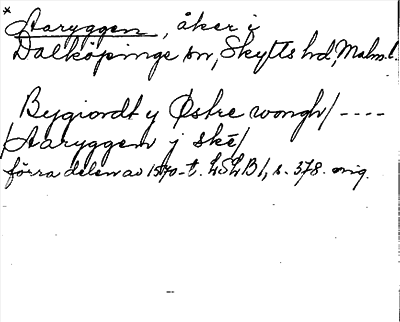 × Aaryggen, åker i
Dalköpinge sn, Skytts hd, Malm. l.
Bygiordt y Østre wongh/ ----
/Aaryggen j skē/
förra delen av 1570-t. LSLB 1, s. 378. orig.